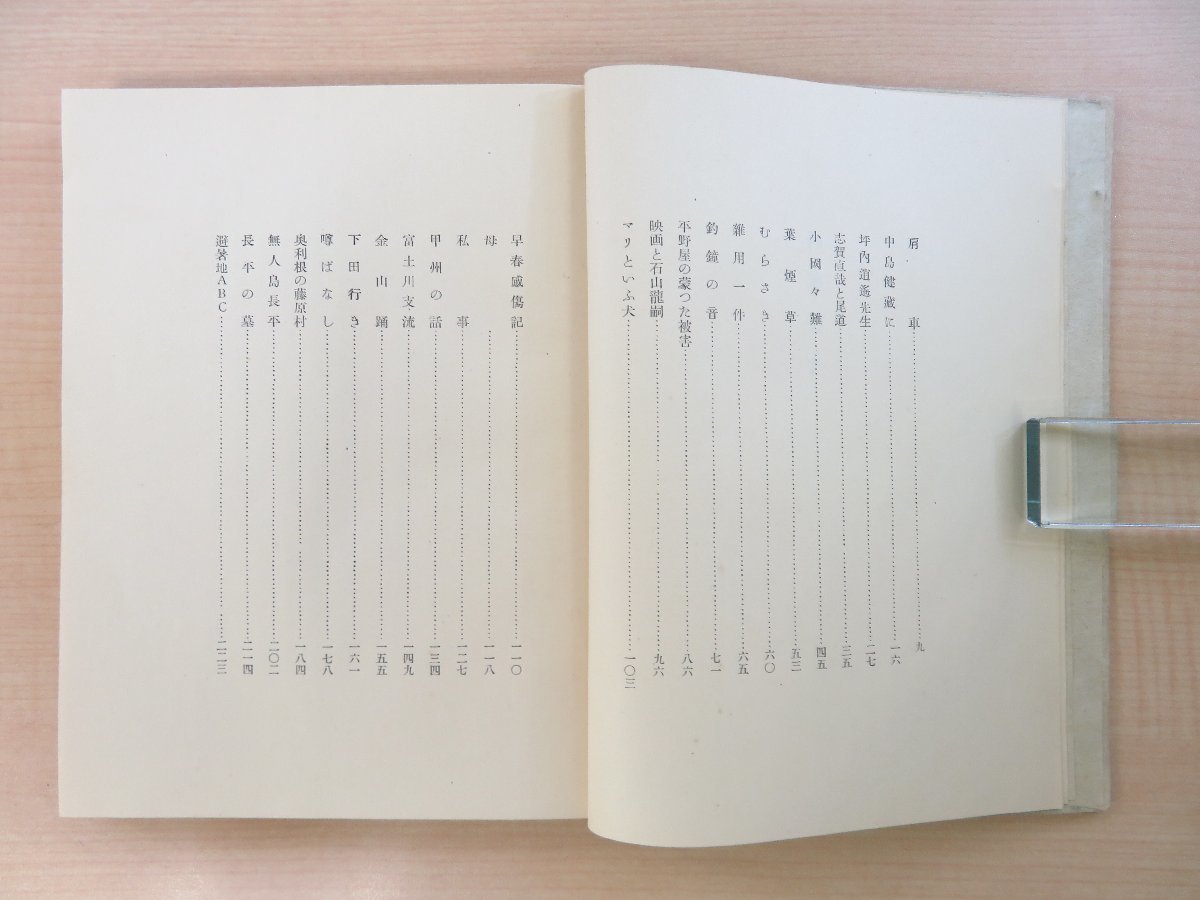 肩車……九
中島健藏に……一六
坪內逍遙先生……二七
志賀直哉と尾道……三五
小國々雜……四五
葉煙草……五三
むらさき……六〇
雜用一件……六五
釣鐘の音……七一
平野屋の蒙つた被害……八六
映画と石山龍嗣……九六
マリといふ犬……一〇三
早春感傷記……一一〇
母……一一八
私事……一二七
甲州の話……一三四
富士川支流……一四九
金山踊……一五五
下田行き……一六一
噂ばなし……一七八
奧利根の藤原村……一八四
無人島長平……二〇二
長平の墓……二一四
避暑地ABC……二二三